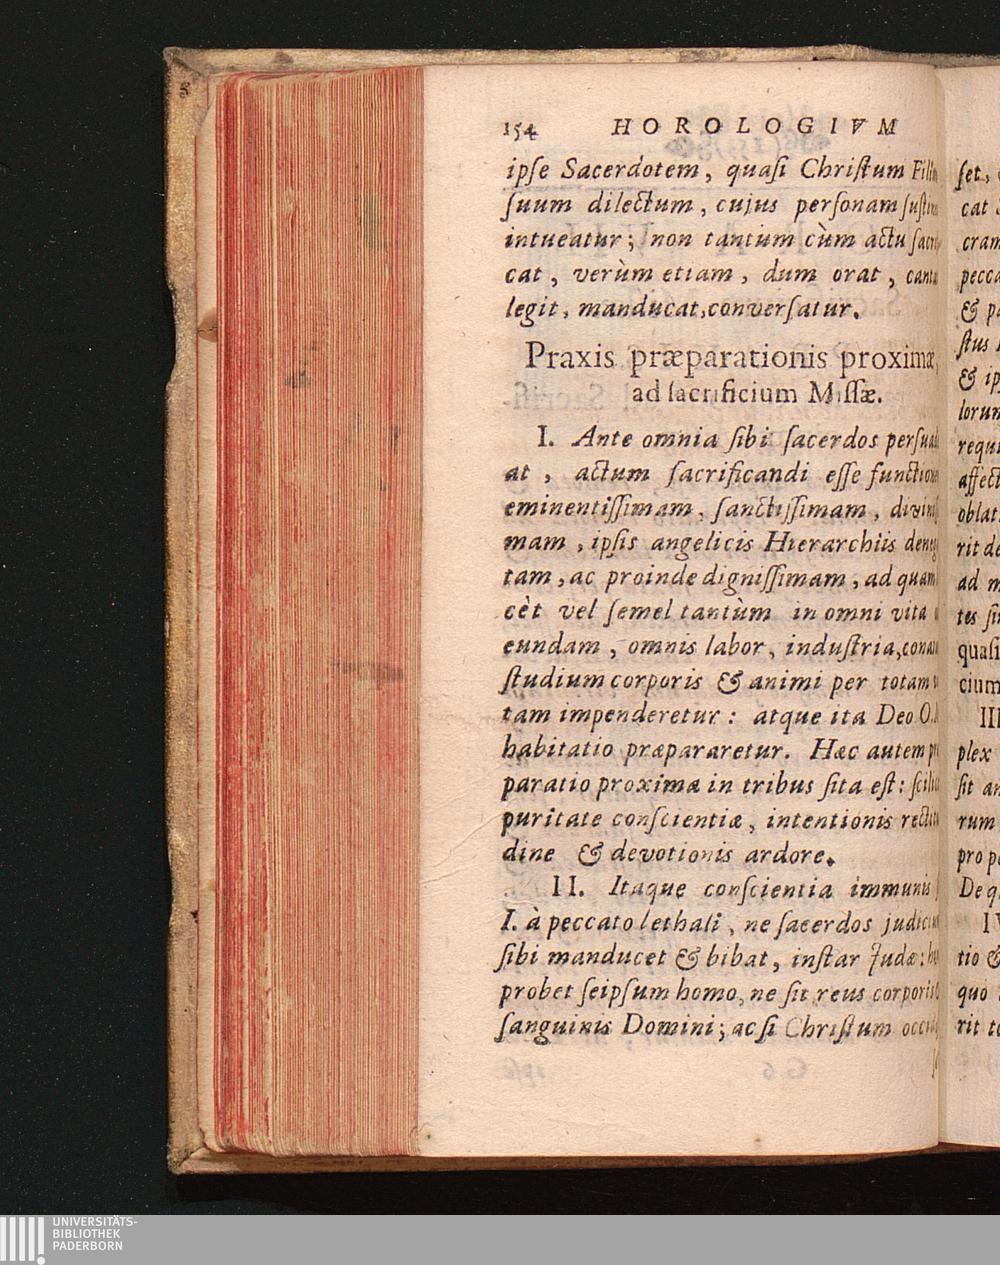 154 HOROLOGIVM
ipſe Sacerdotem, quaſi Chriſtum Fili
ſuum dilectum, cujus perſonam ſuſti
intueatur; non tantùm cùm actu ſacri
cat, verùm etiam, dum orat, canta
legit, manducat, converſatur.
Praxis præparationis proximæ
ad ſacrificium Miſſæ.
I. Ante omnia ſibi ſacerdos perſua
at, actum ſacrificandi eſſe functione
eminentiſſimam, ſanctiſſimam, diviniſ
mam, ipſis angelicis Hierarchiis deneg
tam, ac proinde digniſſimam, ad quam
cèt vel ſemel tantùm in omni vita
eundam, omnis labor, induſtria, cona
ſtudium corporis & animi per totam
tam impenderetur: atque ita Deo O.
habitatio præpararetur. Hæc autem p
paratio proxima in tribus ſita eſt: ſcili
puritate conſcientiæ, intentionis recti
dine & devotionis ardore.
II. Itaque conſcientia immunis
I. à peccato lethali, ne ſacerdos judic
ſibi manducet & bibat, inſtar Judæ:
probet ſeipſum homo, ne ſit reus corporis
ſanguinis Domini; ac ſi Chriſtum occi
ſet,
cat
cram
pecca
& p
ſtus
& ip
lorum
requi
affect
oblat
rit de
ad m
tes ſi
quaſi
cium
III
plex
ſit an
rum
pro p
De q
IV
tio &
quo
rit t
UNIVERSITÄTS-
BIBLIOTHEK
PADERBORN